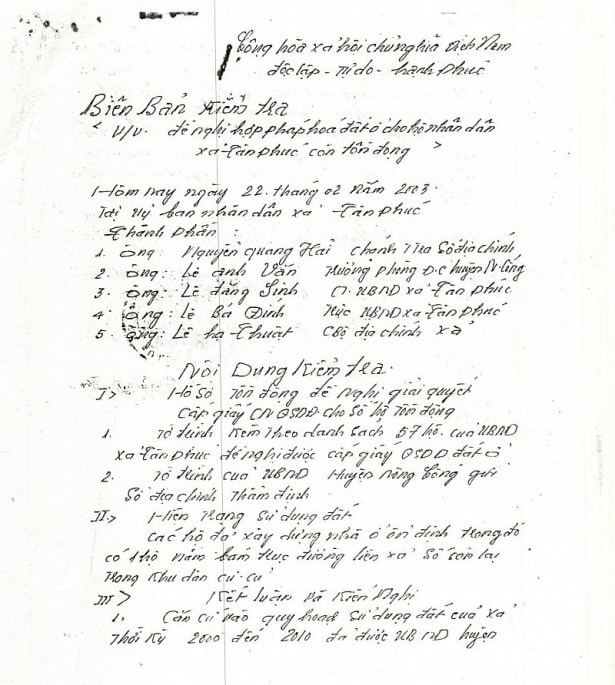 Cộng hòa xã hội chủ nghĩa Việt Nam
độc lập - Tự do - hạnh phúc
Biên Bản Kiểm tra
< V/v. đề nghị hợp pháp hoá đất ở cho hộ nhân dân
xã Tân phúc còn tồn đọng >
Hôm nay ngày 22. tháng 02 năm 2003.
Tại uỷ ban nhân dân xã Tân phúc
Thành phần :
1. ông: Nguyễn Quang Hải chánh tra Sở địa chính
2. ông: Lê anh Văn Trưởng phòng Đ.C huyện N. Cống
3. ông: Lê đăng Sinh CT. UBND xã Tân phúc
4. ông: Lê Bá Định Trực UBND xã Tân phúc
5. ông: Lê hạ Thuật CBộ địa chính xã
Nội Dung Kiểm tra.
I> Hồ Sơ tồn đọng đề nghị giải quyết
Cấp giấy CN QSDĐ cho số hộ tồn đọng
1. Tờ trình kèm theo danh sách 57 hộ. của UBND
xã Tân phúc đề nghị được cấp giấy QSDĐ đất ở
2. Tờ trình của UBND Huyện Nông Cống gửi
Sở địa chính thẩm định
II.> Hiện trạng sử dụng đất
các hộ đã xây dựng nhà ở ổn định trong đó
có 1 hộ nằm bám trục đường liên xã Số còn lại
trong khu dân cư cũ
III> Kết luận và Kiến Nghị
1. Căn cứ vào quy hoạch sử dụng đất của xã
Thời kỳ 2000 đến 2010 đã được UBND huyện